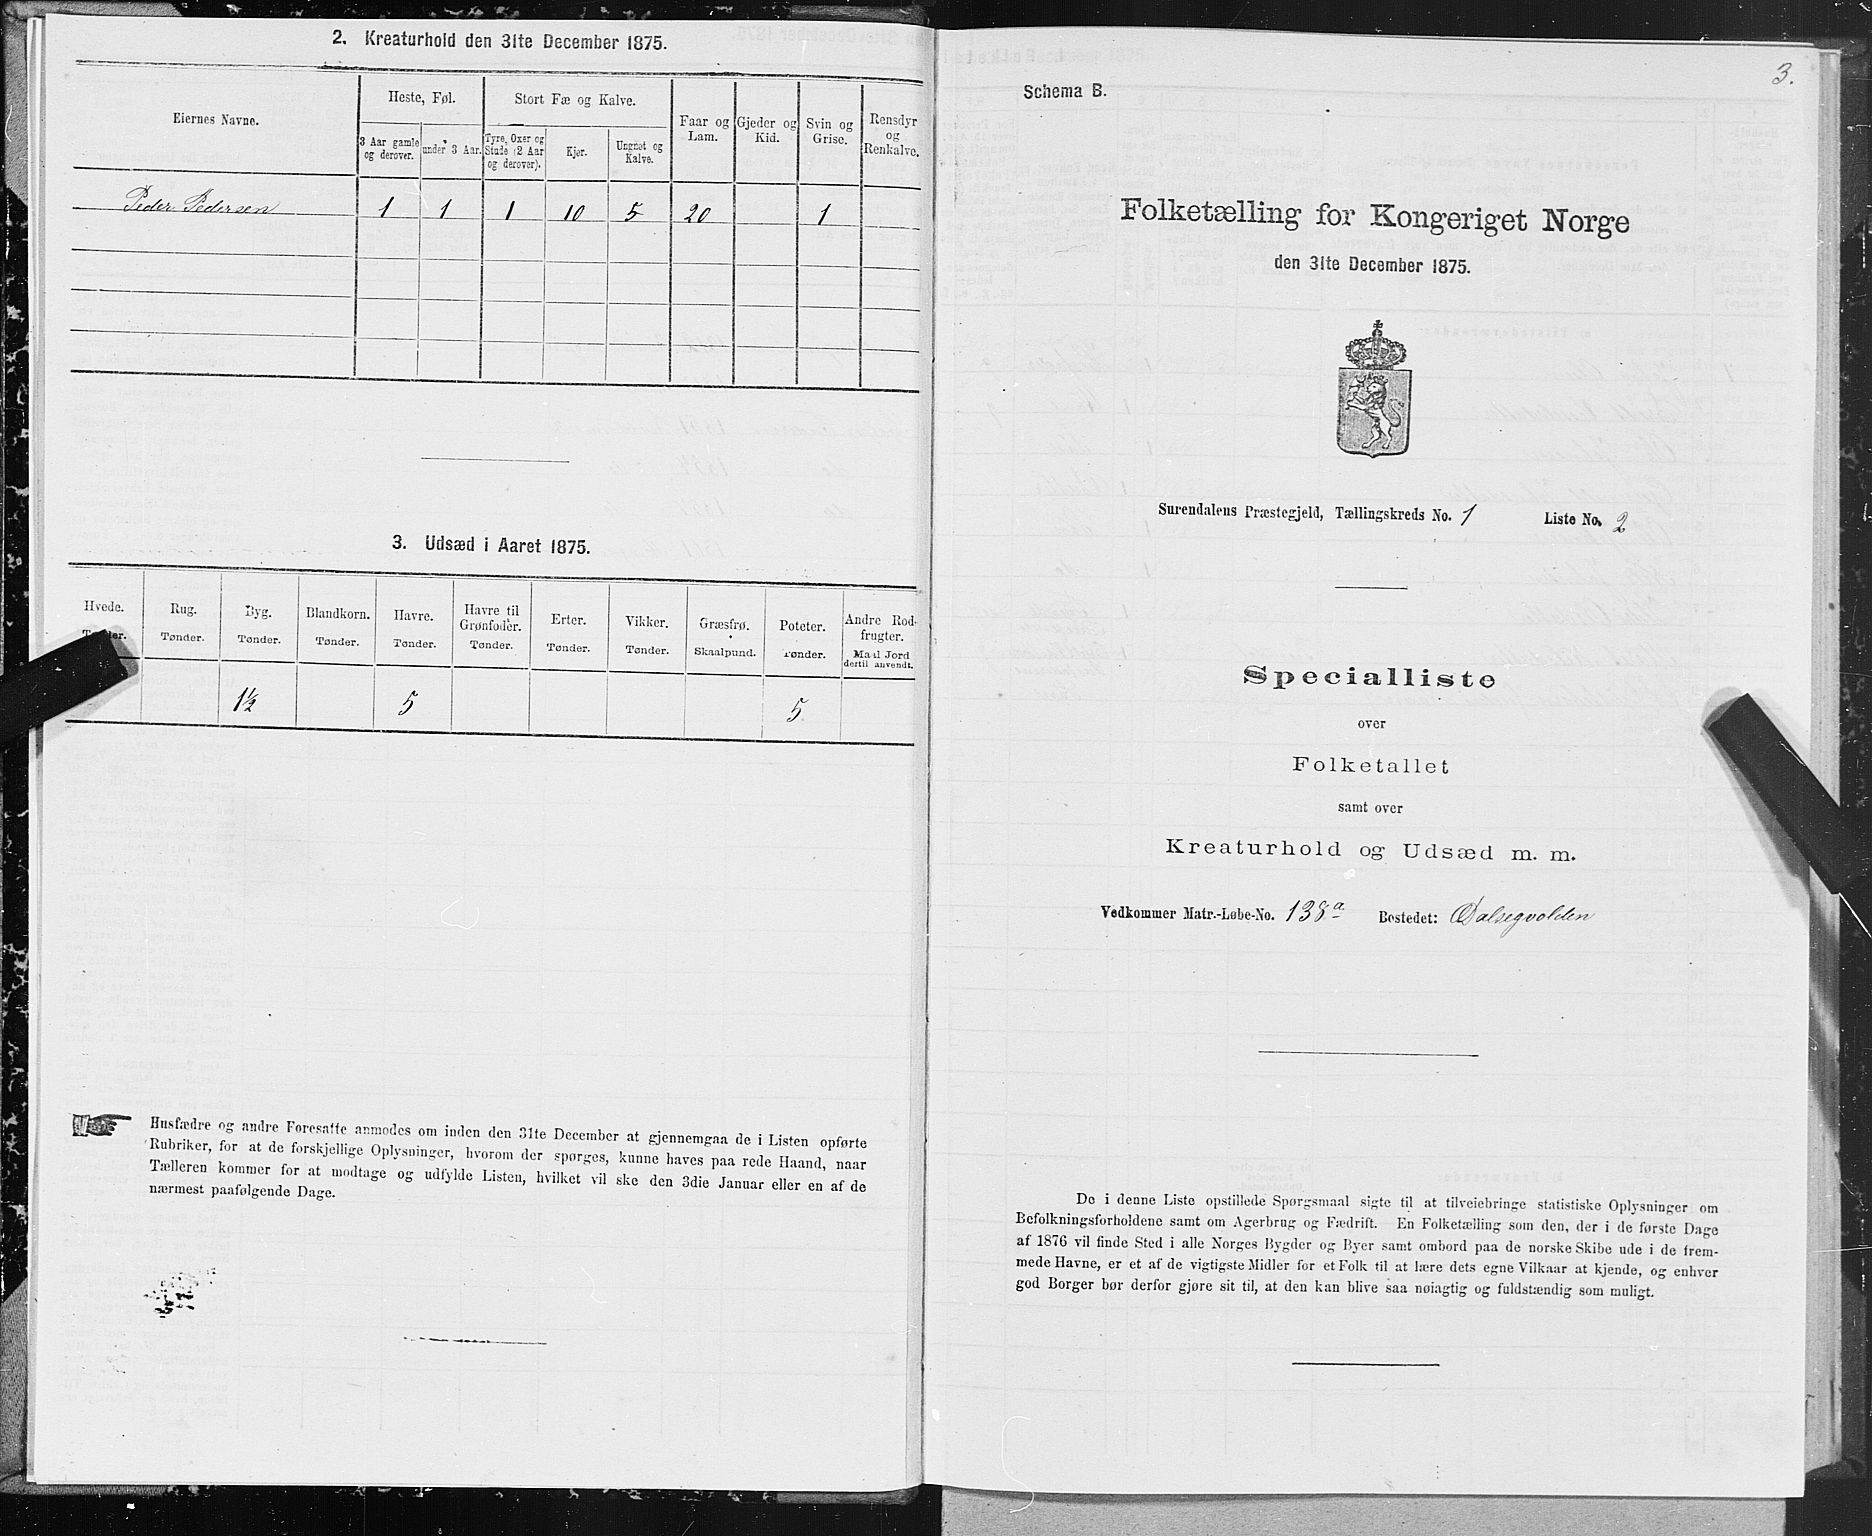 2. Kreaturhold den 31te December 1875.
Eiernes Navne.
Heste, Føl.
Stort Fæ og Kalve.
Faar og Lam.
Gjeder og Kid.
Svin og Grise.
Rensdyr og Renkalve.
3 Aar gamle og derover.
under 3 Aar.
Tyre, Oxer og Stude (2 Aar og derover).
Kjør.
Ungnøt og Kalve.
Peder Pedersen 1 1 1 10 5 20 1
3. Udsæd i Aaret 1875.
Hvede. Rug. Byg. Blandkorn. Havre. Havre til Grønfoder. Erter. Vikker. Græsfrø. Poteter. Andre Rodfrugter.
Tønder. Tønder. Tønder. Tønder. Tønder. Tønder. Tønder. Skaalpund. Tønder. Maal Jord dertil anvendt.
1½ 5 5
Husfædre og andre Foresatte anmodes om inden den 31te December at gjennemgaa de i Listen opførte
Rubriker, for at de forskjellige Oplysninger, hvorom der spørges, kunne haves paa rede Haand, naar
Tælleren kommer for at modtage og udfylde Listen, hvilket vil ske den 3die Januar eller en af de
nærmest paafølgende Dage.
3.
Schema B.
Folketælling for Kongeriget Norge
den 31te December 1875.
Surendalens Præstegjeld, Tællingskreds No. 1 Liste No. 2
Specialliste
over
Folketallet
samt over
Kreaturhold og Udsæd m. m.
Vedkommer Matr.-Løbe-No. 138a Bostedet: Dalsegvolden
De i denne Liste opstillede Spørgsmaal sigte til at tilveiebringe statistiske Oplysninger om
Befolkningsforholdene samt om Agerbrug og Fædrift. En Folketælling som den, der i de første Dage
af 1876 vil finde Sted i alle Norges Bygder og Byer samt ombord paa de norske Skibe ude i de frem-
mede Havne, er et af de vigtigste Midler for et Folk til at lære dets egne Vilkaar at kjende, og enhver
god Borger bør derfor gjøre sit til, at den kan blive saa nøiagtig og fuldstændig som muligt.